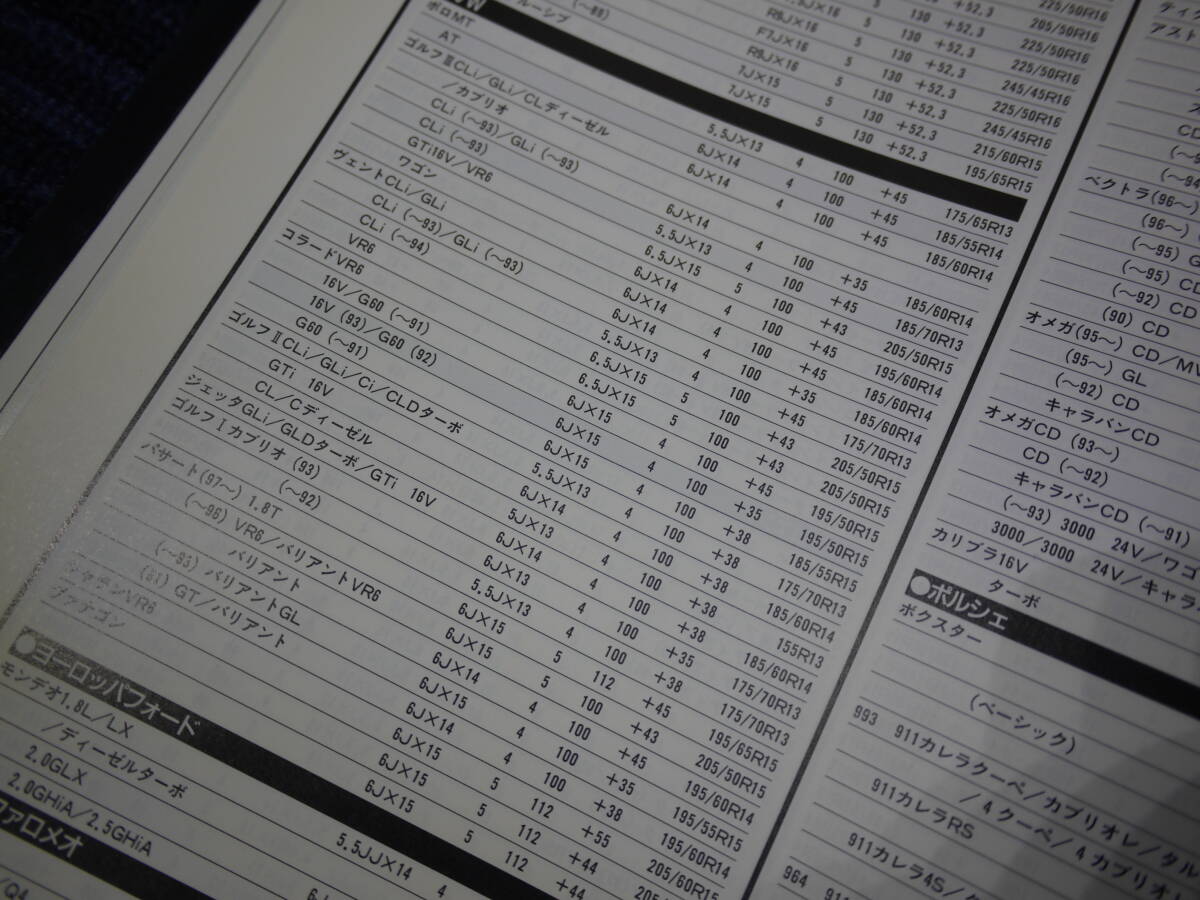 225/50R16
ルーシブ (〜89) R8J×16 5 130 +52.3 205/50R16
F7J×16 5 130 +52.3 225/50R16
R9J×16 5 130 +52.3 245/45R16
7J×15 5 130 +52.3 215/60R15
7J×15 5 130 +52.3 195/65R15
VW
ポロMT 5.5J×13 4 100 +45 175/65R13
AT 6J×14 4 100 +45 185/55R14
ゴルフⅢCLi/GLi/CLディーゼル 6J×14 4 100 +45 185/60R14
/カブリオ
CLi (〜93)/GLi (〜93) 6J×14 4 100 +35 185/60R14
CLi (〜93) 5.5J×13 4 100 +45 185/70R13
GTi16V/VR6 6.5J×15 5 100 +43 205/50R15
ワゴン 6J×14 4 100 +45 195/60R14
ヴェントCLi/GLi 6J×14 4 100 +45 185/60R14
CLi (〜93)/GLi (〜93) 6J×14 4 100 +35 185/60R14
CLi (〜94) 5.5J×13 4 100 +45 175/70R13
VR6 6.5J×15 5 100 +43 205/50R15
コラードVR6 6.5J×15 5 100 +43 205/50R15
16V/G60 (〜91) 6J×15 4 100 +45 195/50R15
16V (93)/G60 (92) 6J×15 4 100 +35 195/50R15
G60 (〜91) 6J×15 4 100 +38 185/55R15
ゴルフⅡCLi/GLi/Ci/CLDターボ 5.5J×13 4 100 +38 175/70R13
GTi 16V 6J×14 4 100 +38 185/60R14
CL/Cディーゼル 5J×13 4 100 +38 155R13
ジェッタGLi/GLDターボ/GTi 16V 6J×14 4 100 +38 185/60R14
ゴルフⅠカブリオ (93) 6J×13 4 100 +35 175/70R13
(〜92) 5.5J×13 4 100 +38 175/70R13
パサート(97〜) 1.8T 6J×15 5 112 +45 195/65R15
(〜96) VR6/バリアントVR6 6J×15 5 100 +43 205/50R15
バリアント 6J×14 4 100 +45 195/60R14
(〜93) バリアントGL 6J×15 4 100 +35 195/55R15
(91) GT/バリアント 6J×14 4 100 +38 195/60R14
シャランVR6 6J×15 5 112 +55 205/60R15
ヴァナゴン 6J×15 5 112 +44
6J×15 5 112 +44
●ヨーロッパフォード
モンデオ1.8L/LX 5.5JJ×14 4
/ディーゼルターボ
2.0GLX
2.0GHiA/2.5GHiA
ファロメオ
/Q4
アスト
ベクトラ(96〜)
(96〜)
(〜95) G
(〜95) CD
(〜92) CD
(90) CD
オメガ(95〜) CD/MV
(95〜) GL
(〜92) CD
キャラバンCD
オメガCD (93〜)
CD (〜92)
キャラバンCD (〜91)
(〜93) 3000 24V/ワゴ
3000/3000 24V/キャラ
カリブラ16V
ターボ
●ポルシェ
ボクスター
(ベーシック)
993 911カレラクーペ/カブリオレ/タル
/4クーペ/4カブリオ
911カレラRS
911カレラ4S/
964